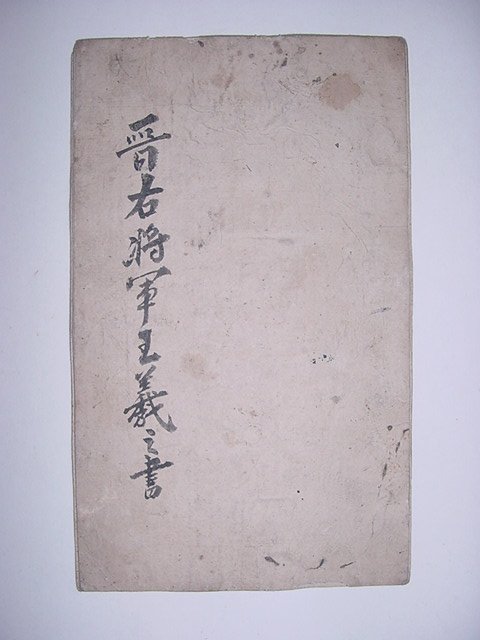 晉右將軍王羲之書